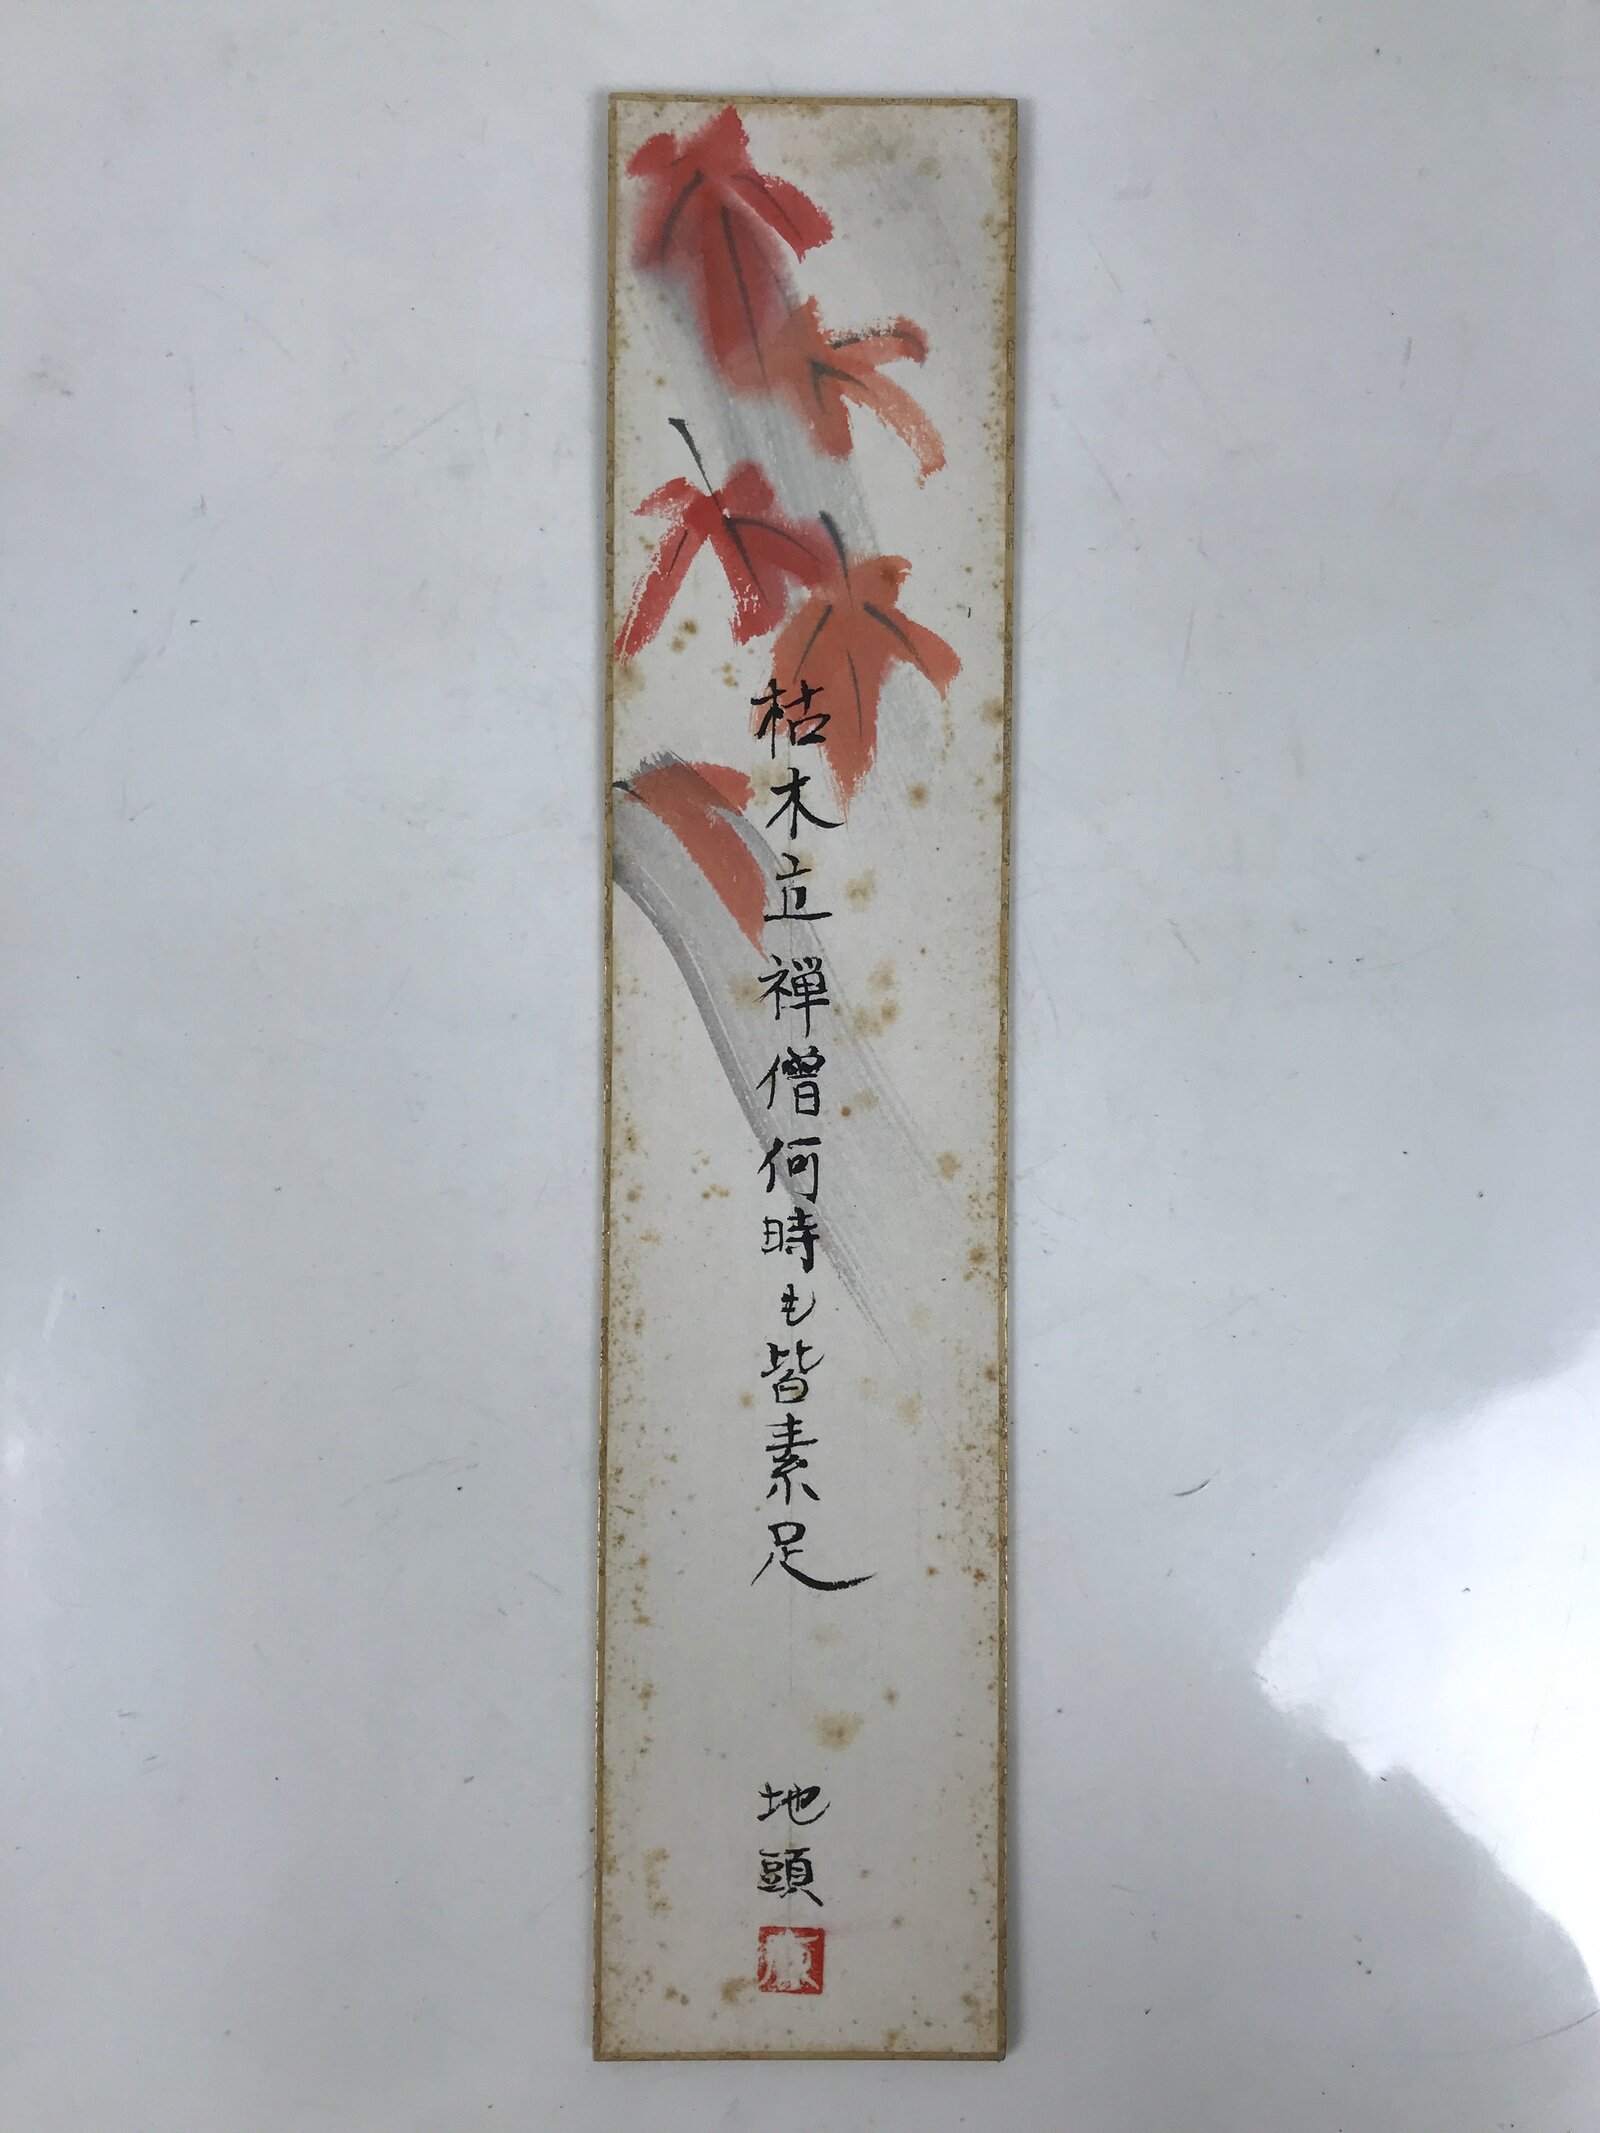 枯木立禅僧何時も皆素足
地頭
康